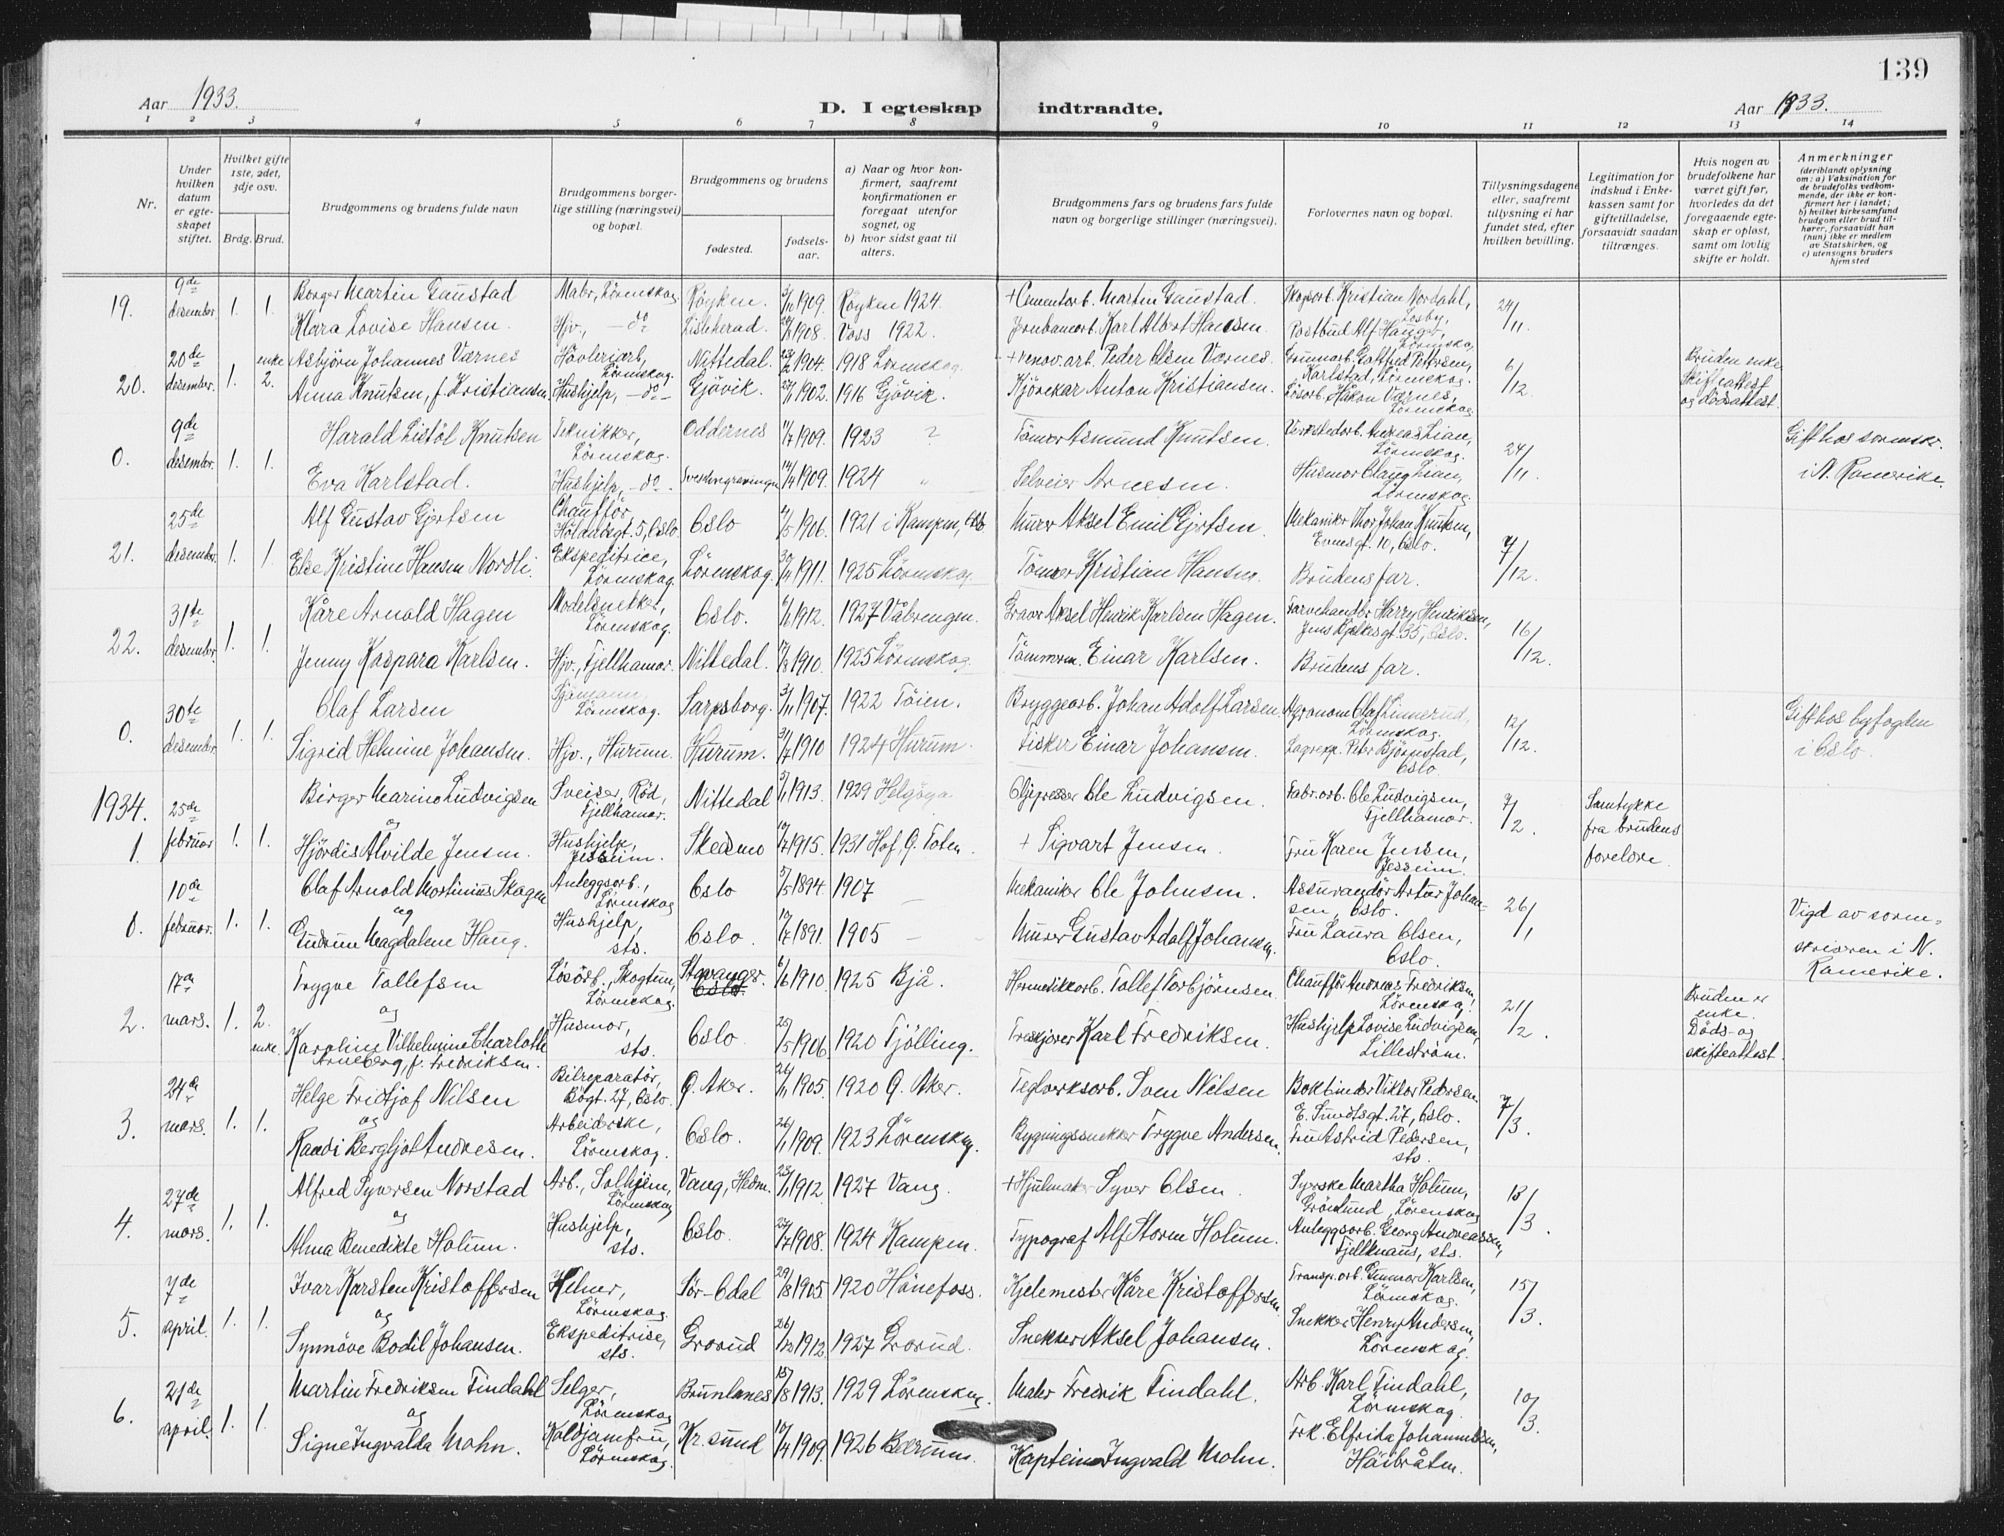 139
Aar 1933.
D. I egteskap indtraadte.
Aar 1933.
1 2 3 4 5 6 7 8 9 10 11 12 13 14
Nr.
Under hvilken datum er egteskapet stiftet.
Hvilket gifte 1ste, 2det, 3dje osv.
Brdg. Brud.
Brudgommens og brudens fulde navn
Brudgommens borgerlige stilling (næringsvei) og bopæl.
Brudgommens og brudens
fødested.
fødselsaar.
a) Naar og hvor konfirmert, saafremt konfirmationen er foregaat utenfor sognet, og
b) hvor sidst gaat til alters.
Brudgommens fars og brudens fars fulde navn og borgerlige stillinger (næringsvei).
Forlovernes navn og bopæl.
Tillysningsdagene eller, saafremt tillysning ei har fundet sted, efter hvilken bevilling.
Legitimation for indskud i Enkekassen samt for giftetilladelse, forsaavidt saadan tiltrænges.
Hvis nogen av brudefolkene har været gift før, hvorledes da det foregaaende egteskap er opløst, samt om lovlig skifte er holdt.
Anmerkninger (deriblandt oplysning om: a) Vaksination for de brudefolks vedkommende, der ikke er konfirmert her i landet; b) hvilket kirkesamfund brudgom eller brud tilhører, forsaavidt han (hun) ikke er medlem av Statskirken, og c) utensogns bruders hjemsted
19. 9de desember 1. 1. Borger Martin Gaustad Maler, Lörenskog Röyken. 1909. Röyken 1924. + Cementarb. Martin Gaustad. Skogsarb. Kristian Nordahl, Losby, 24/11.
Klara Lovise Hansen. Hjv. —do Lisleherad. 1908. Voss 1922. Jernbanearb. Karl Albert Hansen. Postbud Alf Hauger, Lörenskog
20. 20de desember. 1. enke 2. Asbjörn Johannes Værnes Hövleriarb, Lörenskog. Nittedal. 1904. 1918 Lörenskog + renov.arb. Peder Olsen Værnes. Grunnarb. Gottfred Pettersen, Karlstad, Lörenskog. 6/12. Bruden enke Skifteattest og dödsattest.
Anna Knutsen, f. Kristiansen Hushjelp, —do— Gjövik. 1902. 1916 Gjövik. Kjörekar Anton Kristiansen. Lösarb. Håkon Værnes, Lörenskog
0. 9de desember. 1. 1. Harald Listöl Knutsen Tekniker, Lörenskog. Oddernes 1909. 1923 ? Tömrer Asmund Knutsen. Verkstedarb. Andreas Lian, Lörenskog. 24/11. Gift hos sorenskr. i N. Romerike.
Eva Karlstad. Hushjelp, —do— 14/4 1909. 1924 „ Selveier Arnesen. Husmor Olaug Lian, Lörenskog
21. 25de desember. 1. 1. Alf Gustav Gjertsen Chauffør, Hölandsgt. 5, Oslo. Oslo 4/5 1906. 1921 i Kampen, Oslo Murer Aksel Emil Gjertsen. Mekaniker Thor Johan Knutsen, Ennesgt. 10, Oslo. 7/12.
Else Kristine Hansen Nordli. Ekspeditrice, Lörenskog. Lörenskog. 1911. 1925 Lörenskog Tömrer Kristian Hansen. Brudens far.
22. 31te desember. 1. 1. Kåre Arnold Hagen Modelsnekker, Lörenskog. Oslo. 1912. 1927 Vålrengen. Gravør Aksel Henrik Karlsen Hagen. Farvehandler Harry Henriksen, Jens Bjelkesgt. 35, Oslo. 16/12.
Jenny Kaspara Karlsen. Hjv., Fjellhamar. Nittedal. 1910. 1925 Lörenskog Tömmerm. Einar Karlsen. Brudens far.
0. 30te desember. 1. 1. Olaf Larsen Sjömann, Lörenskog. Sarpsborg. 3/11 1907. 1922 Töien. Bryggearb. Johan Adolf Larsen. Agronom Olaf Linnerud, Lörenskog 12/12. Gift hos byfogden i Oslo.
Sigrid Helmine Johansen. Hjv., Hurum. Hurum. 1910 1924 Hurum. Fisker Einar Johansen. Lagerexp. Peter Björnstad, Oslo
1934.
1. 25de februar 1. 1. Birger Marino Ludvigsen og Sveiser, Röd, Fjellhamar. Nittedal 5/1 1913. 1929 Helgöya Oljepresser Ole Ludvigsen. Fabr.arb. Ole Ludvigsen, Fjellhamar. 7/2 Samtykke fra brudens foreldre.
Hjördis Alvilde Jensen. Hushjelp, Jessheim. Skedsmo 1915. 1931 Hof Ö. Toten. + Sigvart Jensen. Fru Karen Jensen, Jessheim.
0. 10de februar. 1. 1. Olaf Arnold Martinius Skogen og Anleggsarb., Lörenskog Oslo 5/5 1894. 1907 — Mekaniker Ole Johnsen. Assurandör Artur Johansen, Oslo. 26/1 Vigd av sorenskriveren i N. Romerike.
Gudrun Magdalene Haug. Hushjelp, sts. Oslo. 1891. 1905 — Murer Gustav Adolf Johansen. Fru Laura Olsen, Oslo.
2. 17de mars. 1. 2. enke. Trygve Tollefsen og Lösarb., Skogtun, Lörenskog. Stavanger. Oslo. 6/6 1910. 1925 Bjå. Hermetikkarb. Tollef Torbjörnsen. Chauffør Andreas Fredriksen, Lörenskog. 21/2. Bruden er enke. Döds- og skifteattest.
Karoline Vilhelmine Charlotte Arneberg, f. Fredriksen. Husmor, sts. Oslo 25/5 1906. 1920 Tjölling. Treskjærer Karl Fredriksen. Hushjelp Lovise Ludvigsen, Lilleström.
3. 24de mars. 1. 1. Helge Fridtjof Nilsen og Bilreparatör, Bögt. 27, Oslo. Ö. Aker. 1905. 1920 Ö. Aker. Teglverksarb. Sven Nilsen Bokbinder Viktor Pedersen. E. Sundtsgt. 27, Oslo. 7/3.
Randi Bergljot Andresen. Arbeiderske, Lörenskog. Oslo. 26/1 1909. 1923 Lörenskog. Bygningssnekker Trygve Andersen. Fru Astrid Pedersen, sts.
4. 27de mars. 1. 1. Alfred Syversen Norstad og Arb., Solhjem, Lörenskog Vang, Hedm. 1912. 1927 Vang. + Hjulmaker Syver Olsen. Syerske Martha Holum, Grönlund, Lörenskog 13/3.
Alma Benedikte Holum. Hushjelp, sts. Oslo. 1908. 1924 Kampen. Typograf Alf Storm Holum. Anleggsarb. Georg Andreassen, Fjellknaus, sts.
5. 7de april. 1. 1. Ivar Karsten Kristoffersen og Kelner, Lörenskog. Sör-Odal 29/8 1905 1920 Hönefoss. Kjelemester Kåre Kristoffersen. Transp.arb. Gunnar Karlsen, Lörenskog. 15/3.
Synnöve Bodil Johansen. Ekspeditrise, sts. Grorud 26/12 1912 1927 Grorud. Snekker Aksel Johansen. Snekker Henry Andersen, Lörenskog.
6. 21de april. 1. 1. Martin Fredriksen Tindahl og Selger, Lörenskog Brunlanes 15/8 1913. 1929 Lörenskog. Maler Fredrik Tindahl. Arb. Karl Tindahl, Lörenskog. 10/3.
Signe Ingvalda Mohn. Koldjomfru, Lörenskog. Kr.sund 17/4 1909. 1926 Bærum. Kaptein Ingvald Mohn. Frk. Elfrida Johannessen, Håibråten.